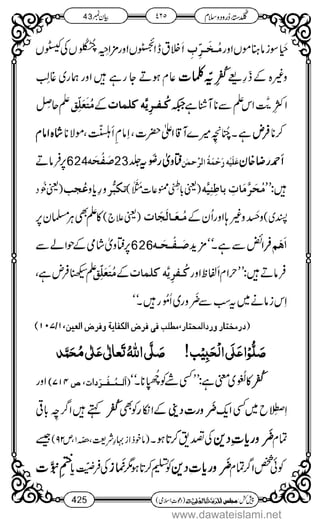 گلدستہ درود و سلام ٤٢٥ بیان نمبر 43
حیا سوز ماہناموں اور مُخَرِّبِ اَخلاق ڈائجسٹوں اور مزاحیہ چٹکلوں کی کیسٹوں
وغیرہ کے ذریعے کُفریہ کلمات عام ہوتے جا رہے ہیں اور ہماری غالب
اکثریَّت اس علم سے ناآشنا ہے جبکہ کُفریہ کلمات کے مُتَعَلِّق علم حاصل
کرنا فرض ہے۔ چنانچہ میرے آقا اعلیٰ حضرت، امامِ اہلسنّت، مولانا امام شاہ
احمد رضا خان عَلَیْہِ رَحْمَۃُ الرَّحْمٰن فتاویٰ رضویہ جلد 23 صَفْحَہ 624 پر فرماتے
ہیں: ’’مُحَرَّماتِ باطِنِیَّہ (یعنی باطنی ممنوعات مَثَلاً) تکبُّر و ریا و عُجب (یعنی خود
پسندی) و حَسَد وغیرہا اور اُن کے مُعَالَجات (یعنی علاج) کا علم بھی ہر مسلمان پر
اَہَم فرائض سے ہے۔‘‘ مزید صَفْحَہ 626 پر فتاویٰ شامی کے حوالے سے
فرماتے ہیں: ’’حرام الفاظ اور کُفریہ کلمات کے مُتَعَلِّق علم سیکھنا فرض ہے،
اِس زمانے میں یہ سب سے ضَروری اُمُور ہیں۔‘‘
(درمختار وردالمحتار،مطلب فی فرض الکفایۃ وفرض العین،١/١٠٧)
صَلُّوْا عَلَی الْحَبِیْب! صَلَّی اللہُ تَعَالٰی عَلٰی مُحَمَّد
کُفر کا لُغوی معنی ہے: ’’کسی شے کو چھپانا۔‘‘ (اَلْمُفْرَدات، ص ٧١٤) اور
اِصطِلاح میں کسی ایک ضَرورتِ دینی کے انکار کو بھی کُفر کہتے ہیں اگرچہ باقی
تمام ضَروریاتِ دین کی تصدیق کرتا ہو۔ (ماخوذ از بہارِ شریعت، حصہ ١، ص ٩٢) جیسے
کوئی شخص اگر تمام ضَروریاتِ دین کو تسلیم کرتا ہو مگر نَماز کی فرضیت یا ختمِ نُبُوَّت
425
www.dawateislami.net